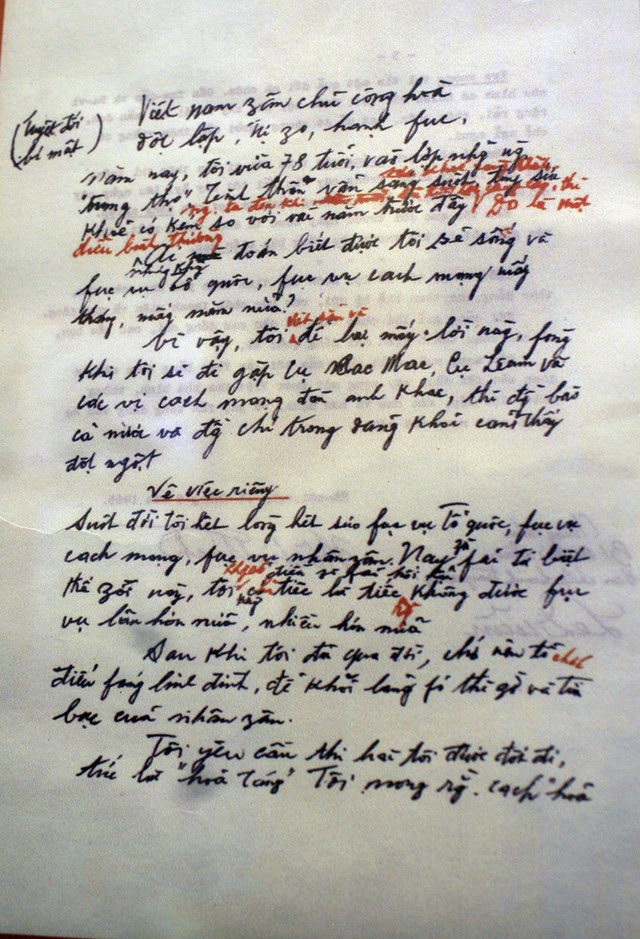 (Tuyệt đối
bí mật)
Việt nam zân chủ cộng hoà
độc lập, tự zo, hạnh fúc.
Năm nay, tôi vừa 78 tuổi, vào lớp những ng
"trung thọ" Tinh thần vẫn sáng suốt, tuy sức
khoẻ có kém so với vài năm trước đây Đó là một
điều bình thường
Ai mà đoán biết được tôi sẽ sống và
fục vụ tổ quốc, fục vụ cách mạng mấy
tháng, mấy năm nữa?
Vì vậy, tôi viết sẵn về để lại mấy lời này, fòng
khi tôi sẽ đi gặp Cụ Các Mác, Cụ Lênin và
các vị cách mạng đàn anh khác, thì đg bào
cả nước và đg chí trong đảng khỏi cảm thấy
đột ngột
Về việc riêng
Suốt đời tôi hết lòng hết sức fục vụ Tổ quốc, fục vụ
cách mạng, fục vụ nhân zân. Nay zù fải từ biệt
thế zới này, tôi không có điều gì fải hối hận
chỉ tiếc là tiếc không được fục
vụ lâu hơn nữa, nhiều hơn nữa
Sau khi tôi đã qua đời, chớ nên tổ chức
điếu fúng linh đình, để khỏi lãng fí thì zờ và tiền
bạc của nhân zân.
Tôi yêu cầu thi hài tôi được đốt đi,
tức là "hoả táng" Tôi mong rg. cách "hoả